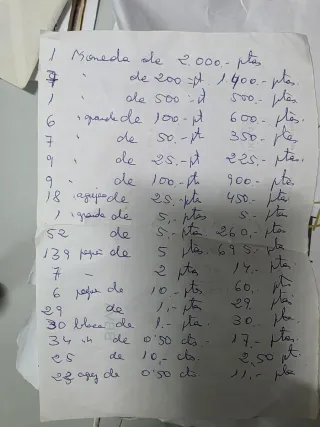 1 Moneda de 2.000.- ptas
7 " de 200.- pt 1.400.- ptas.
1 " de 500.- pt 500.- ptas.
6 " grande de 100.- pt 600.- ptas.
7 " de 50.- pt 350.- ptas.
9 " de 25.- pt 225.- ptas.
9 " de 100.- pts 900.- ptas.
18 " de 25.- pts 450.- ptas.
1 " grande de 5.- ptas 5.- ptas.
52 de 5.- ptas 260.- ptas.
139 de 5 ptas. 695.- ptas.
7 " 2 ptas 14.- ptas.
6 de 10.- ptas 60.- ptas.
29 de 1.- ptas. 29. ptas.
30 de 1.- pta. 30.- ptas.
34 de 0'50 cts. 17.- ptas.
25 de 10.- cts. 2,50 pt.
22 de 0'50 cts. 11.- ptas